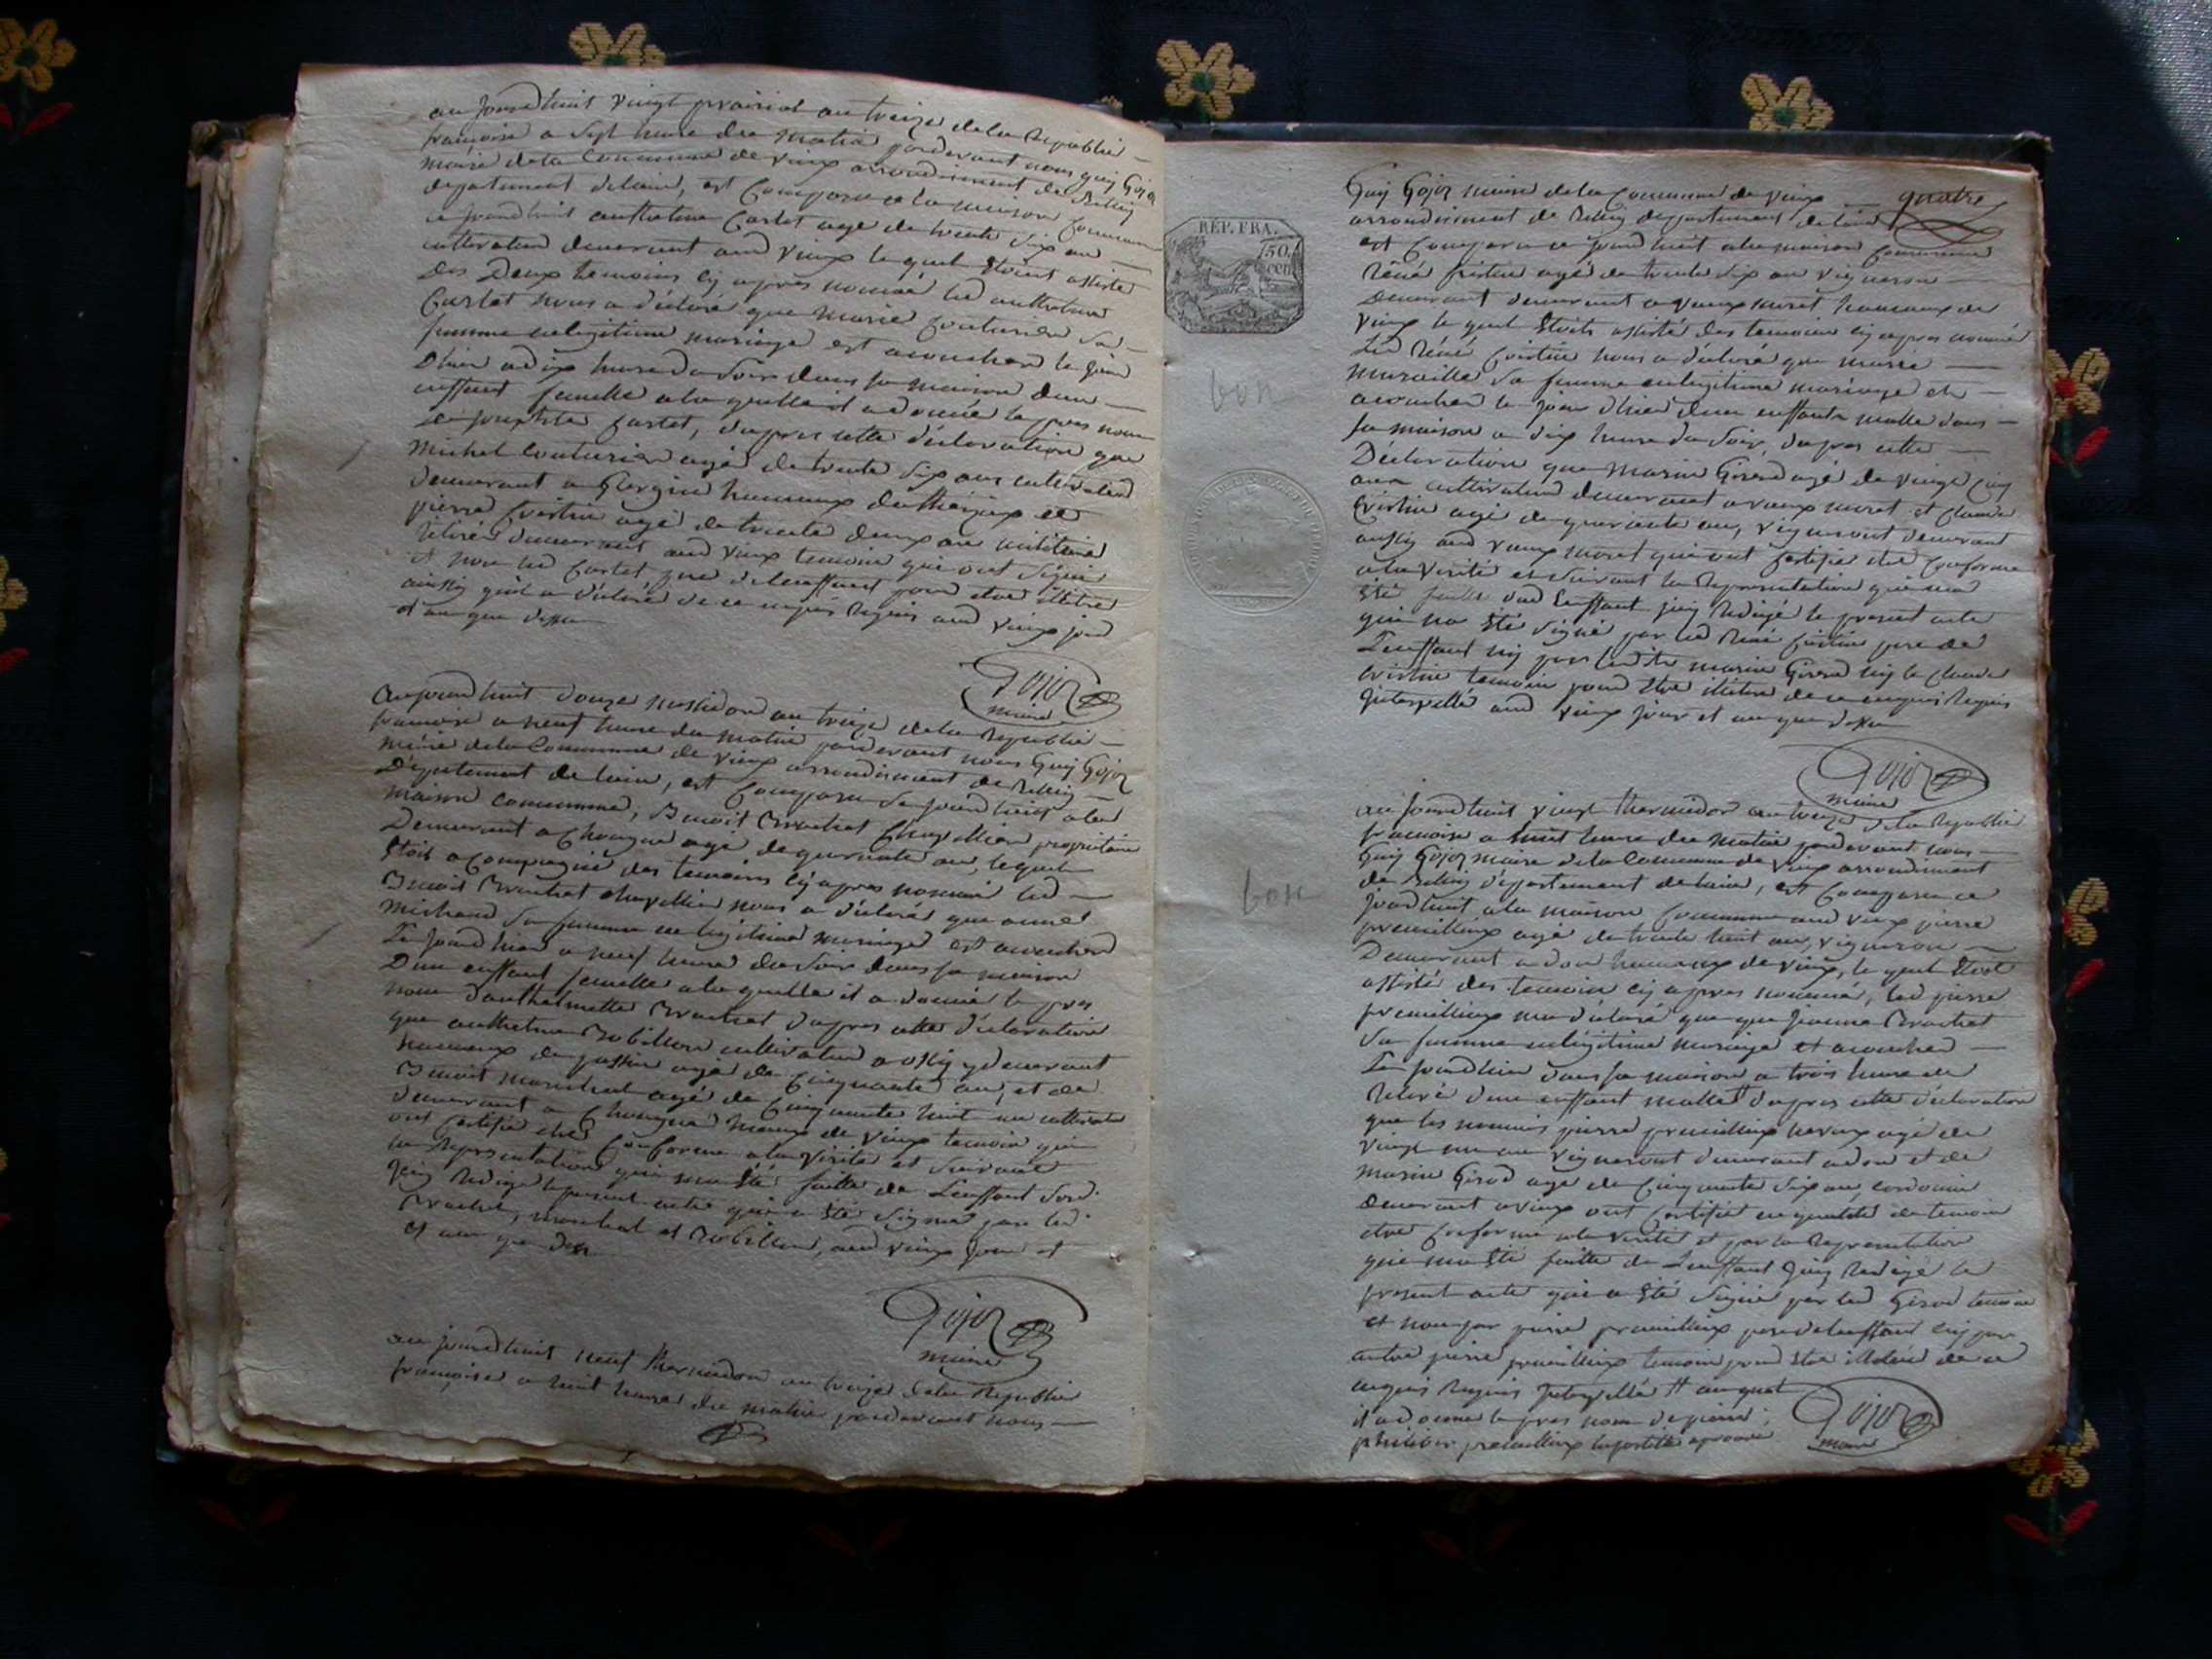 au jourdhuit vingt prairial an treize dela Republi
françoise a sept heure du matin pardevant nous guy Gojoz
maire dela Commune de vieux arrondiment de Belley
departement delain, est Comparu a la maison Commune
ce jourdhuit anthelme Carlet age de trente six an
cultivateur demeurant aud vieux le quel étoient assisté
des Deux temoins cy apres nomée led anthelme
Carlet nous a déclaré que marie couturier sa
femme en legitime mariage est acouchee le jour
Dhier a dix heure du soir dans sa maison dun
enffant femelle ala quelle il a donné le pres nom
de josephte Carlet, dapres cette déclaration que
michel couturier agé de trente six ans cultivateur
demeurant a hameaux et
pierre Cristin agé de trente deux an militaire
retiré demeurant aud vieux temoins que ont signé
et non led Carlet, pere delenffant pour etre iletré
ainssy quil a déclaré de ce enquis Requis aud vieux jour
et an que dessu
Gojoz
maire
Aujourdhuit douze messidor an treize dela Republi
francoise a neuf heure du matin pardevant nous Guy Gojoz
maire dela Commune de vieux arrondiment de Belley
Département de lain, est Comparu se jourdhuit a la
maison commune, Benoit Brachet Chapellier propriétaire
Demeurant a Chongna agé de quarante an, lequel
étoit acompagné des temoins cy apres nommé led
Benoit Brachet chapellier nous a déclaré que anne
michaud sa femme en legitime mariage est acouchee
Le jourdhier a neuf heure du soir dans sa maison
Dun enffant femelle a la quelle il a donné le pres
nom danthelmette Brachet dapres cette déclaration
que anthelme Robillon cultivateur a demeurant
hameaux de agé de Cinquante an, et de
Benoit marchat agé de Cinquante huit an cultivateur
demeurant a Chongna hameaux de vieux temoin qui
ont Certifié etre Conforme ala vérité et suivant
la Representation qui ma été faitte de Lenffant
jay Redigé le present acte qui a été signé par led
Brachet, marchat et Robillon, aud vieux jour et
et an que des
Gojoz
maire
au jourdhuit neuf thermidor an treize dela Republi
françoise a huit heure du matin pardevant nous
Guy Gojoz maire dela Commune de vieux quatre
arrondiment de Belley departement delain
est Comparu ce jourdhuit ala maison Commune
Réné Cristin agé de trente six an vigneron
demeurant demeurant a vaux moret hameaux de
vieux le quel étoits assisté des temoins cy apres nommé
Led Réné Cristin nous a déclaré que marie
sa femme en legitime mariage et
acouchee le jour dhier dun enffant malle dans
sa maison a dix heure du soir, dapres cette
Déclaration que marin Girerd agé de vingt cinq
ans cultivateur demeurant a vaux moret et claude
Cristin agé de quarante an, vigneront demeurant
aussy aud vaux moret qui ont Certifié etre Conforme
a la vérité et suivant la Representation qui ma
été faitte dud Lenffant jay Redigé le present acte
qui na été signé par led Réné Cristin pere de
Lenffant ny par ledite marin Girerd ny le claude
Cristin temoin pour etre iletré de ce enquis Requis
Interpellé aud vieux jour et an que dessu
Gojoz
maire
au jourdhuit vingt thermidor an treize dela Republi
françoise a huit heure du matin pardevant nous
Guy Gojoz maire dela Commune de vieux arrondiment
de Belley département delain, est Comparu ce
jourdhuit ala maison Commune aud vieux pierre
agé de trente huit an, vigneron
Demeurant a don hameaux de vieux, le quel étoit
assisté des temoin cy apres nommé, led pierre
ma déclaré que que jeanne Brachet
sa femme en légitime mariage et acouchee
Le jourdhier dans sa maison a trois heure de
Relevé dun enffant malle # dapres cette déclaration
que les nommés pierre neveux agé de
vingt un an vigneront demeurant a don et de
marin Girod agé de Cinquante six an,
demeurant a vieux ont Certifié en qualité de temoin
etre Conforme ala verité et par la Representation
qui ma été faitte de Lenffant jay Redigé le
present acte qui a été signé par led Girod temoin
et non par pierre pere delenffant ny par
autre pierre temoin pour etre illetré de ce
enquis Requis Interpellé # auquel
il a donné le pres nom de pierre
philiber aprouvé
Gojoz
maire
RÉP. FRA.
50.
cen
bon
bon